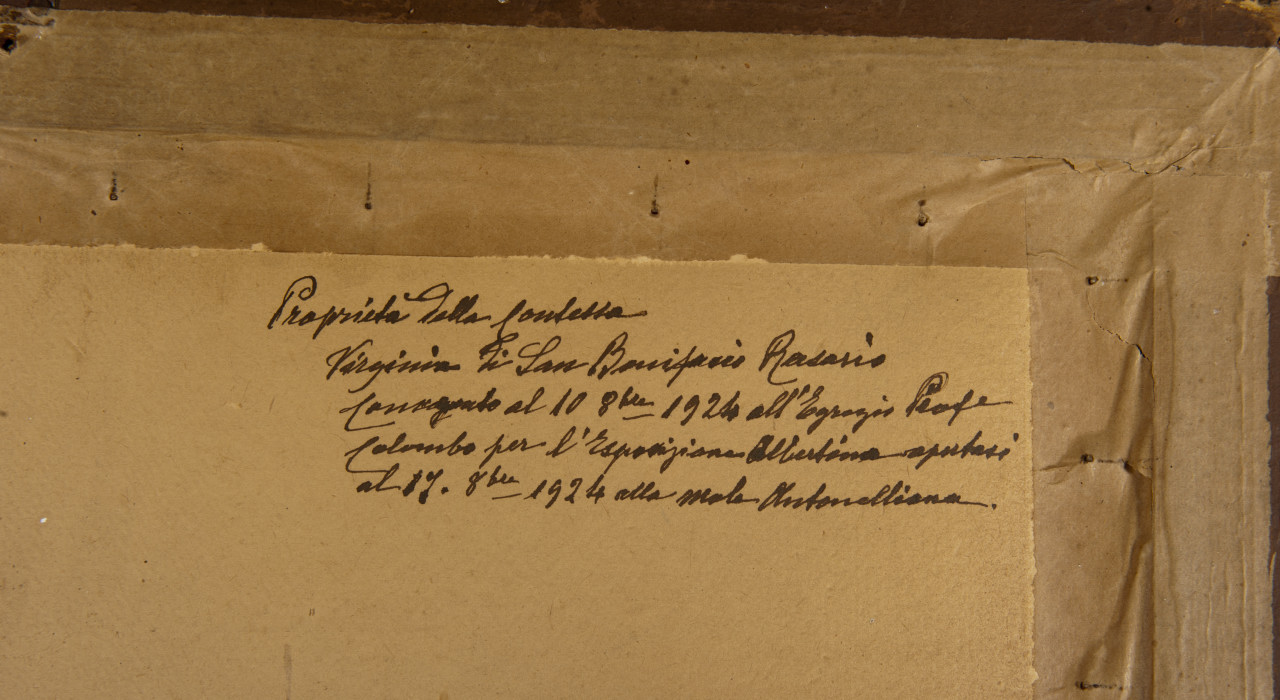 Proprietà della Contessa
Virginia di San Bonifacio Rasario
Consegnato al 10 8bre 1924 all'Egregio Profe
Colombo per l'Esposizione Albertina apertasi
al 17. 8bre 1924 alla mole Antonelliana.